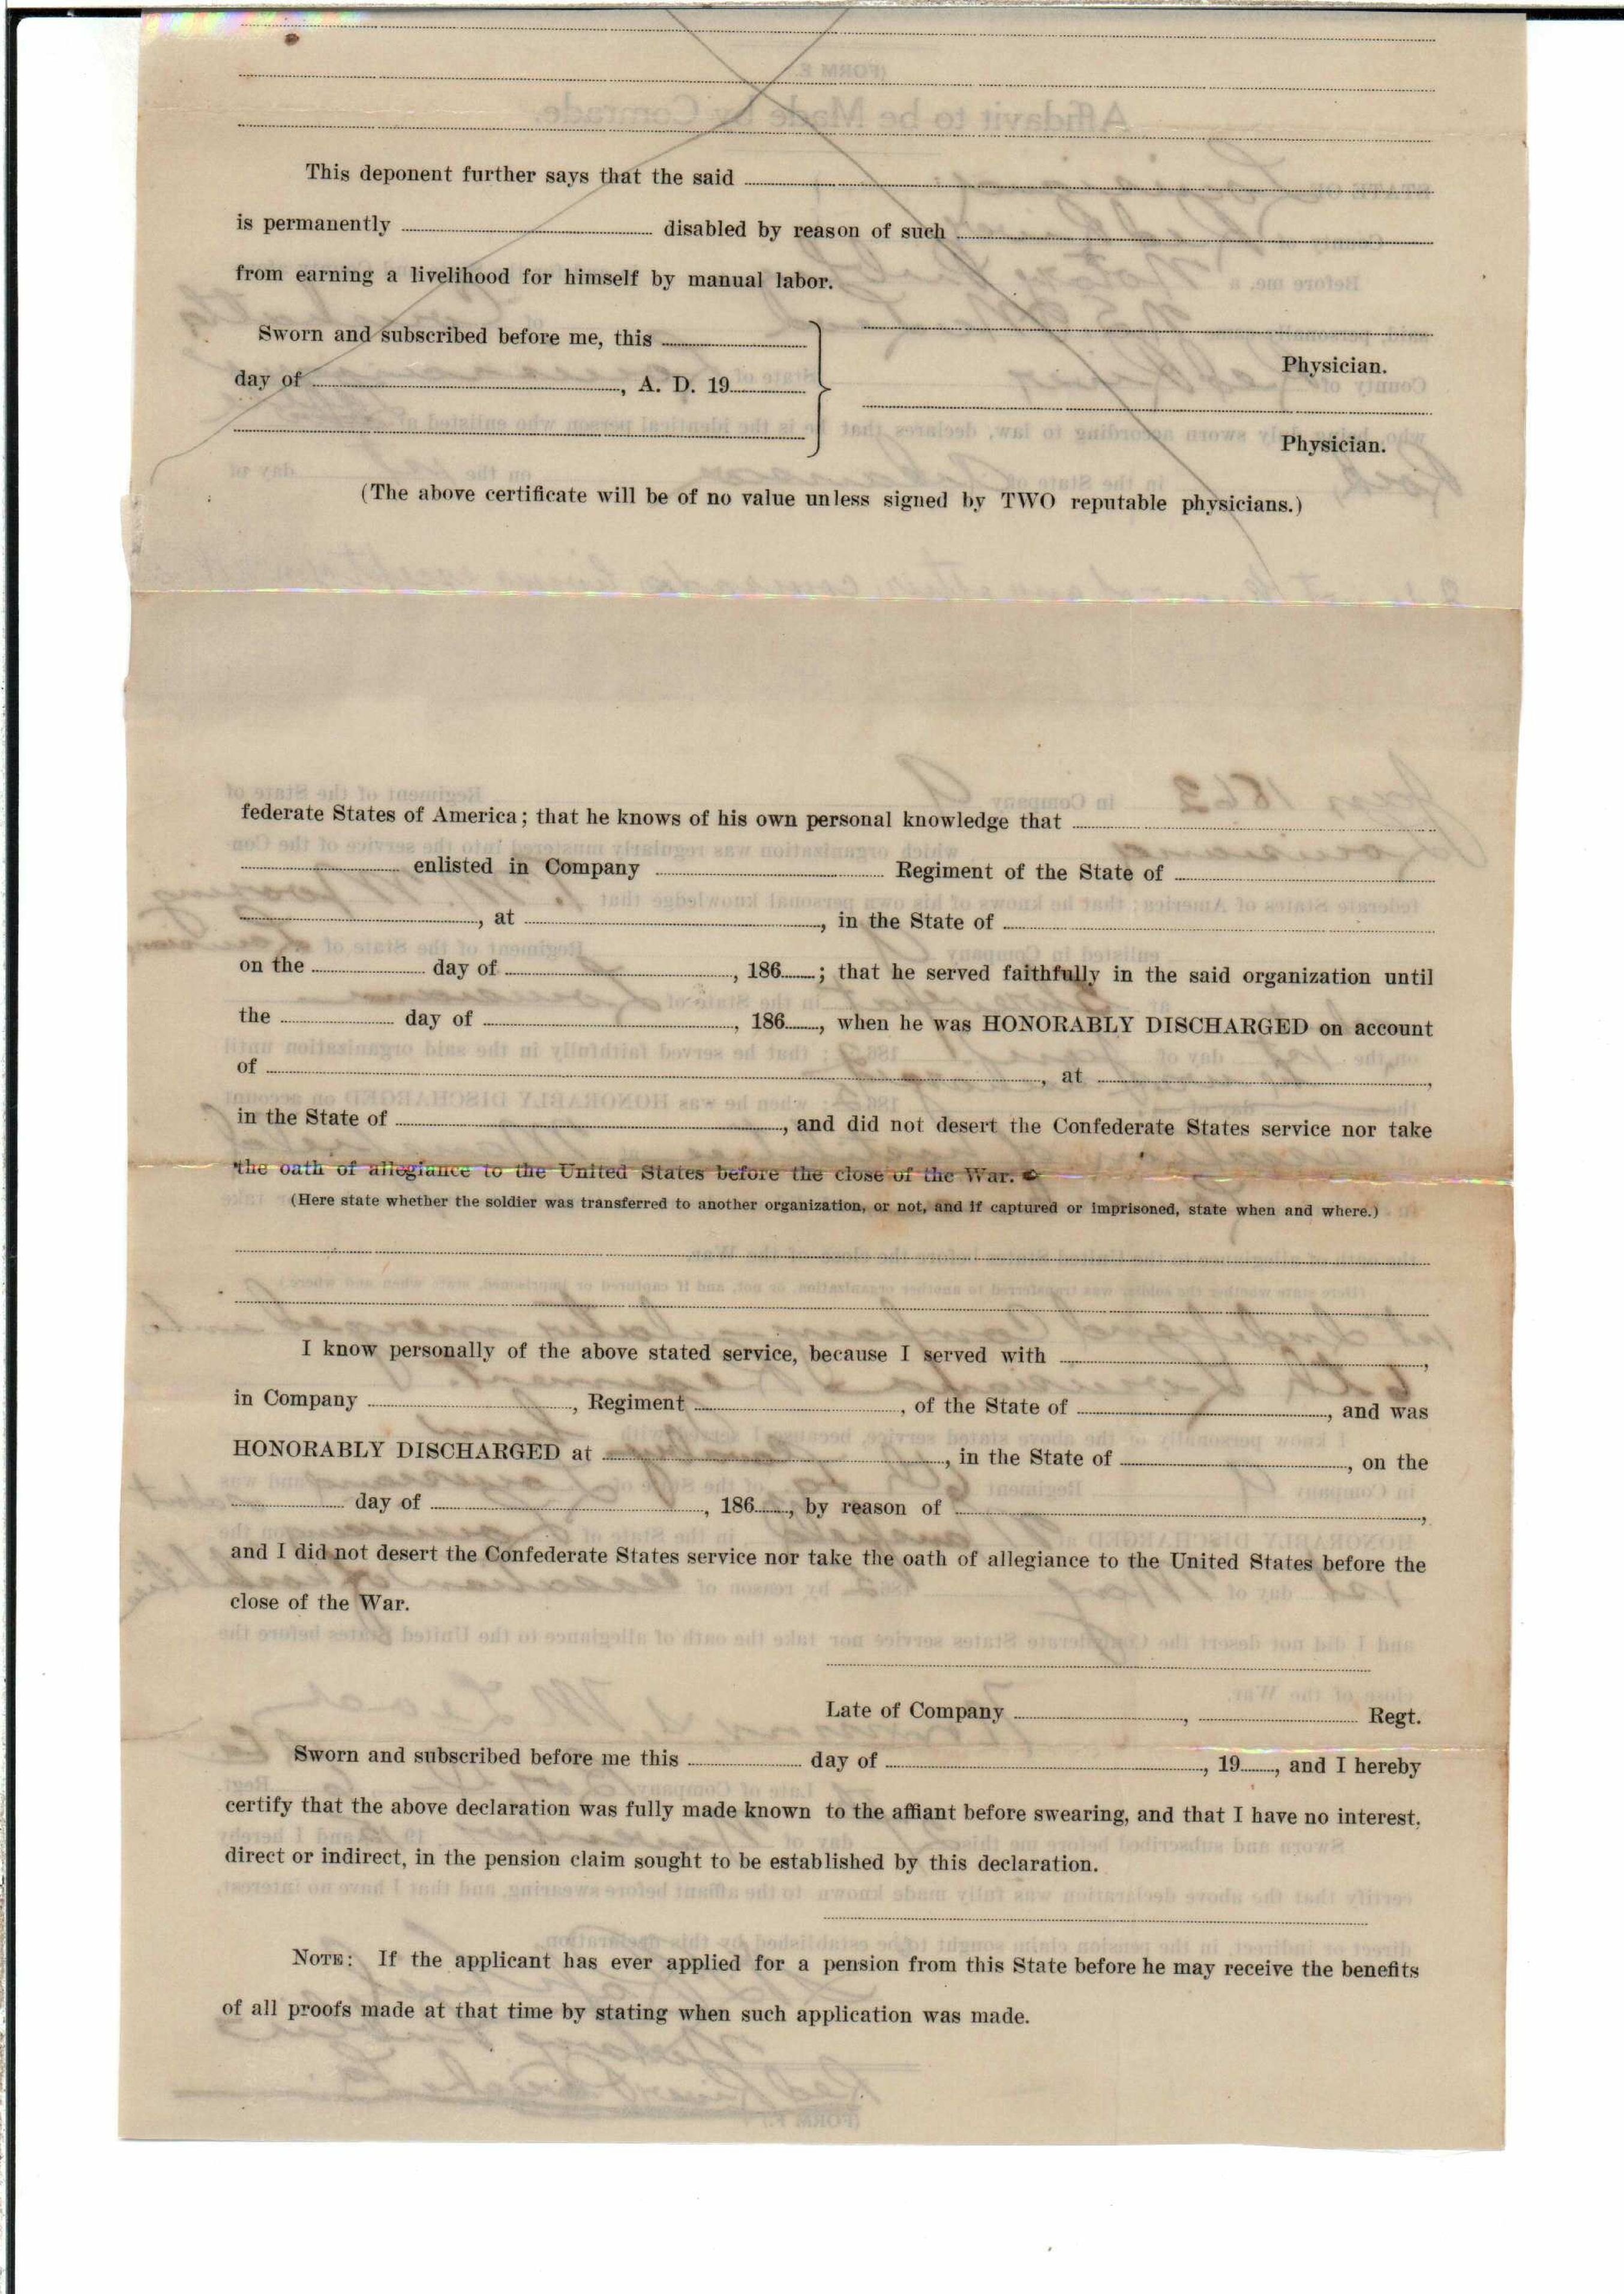 This deponent further says that the said
is permanently disabled by reason of such
from earning a livelihood for himself by manual labor.
Sworn and subscribed before me, this
day of , A. D. 19
Physician.
Physician.
(The above certificate will be of no value unless signed by TWO reputable physicians.)
federate States of America; that he knows of his own personal knowledge that
enlisted in Company Regiment of the State of
, at , in the State of
on the day of , 186 ; that he served faithfully in the said organization until
the day of , 186 , when he was HONORABLY DISCHARGED on account
of , at ,
in the State of , and did not desert the Confederate States service nor take
the oath of allegiance to the United States before the close of the War.
(Here state whether the soldier was transferred to another organization, or not, and if captured or imprisoned, state when and where.)
I know personally of the above stated service, because I served with ,
in Company , Regiment , of the State of , and was
HONORABLY DISCHARGED at , in the State of , on the
day of , 186 , by reason of ,
and I did not desert the Confederate States service nor take the oath of allegiance to the United States before the
close of the War.
Late of Company , Regt.
Sworn and subscribed before me this day of , 19 , and I hereby
certify that the above declaration was fully made known to the affiant before swearing, and that I have no interest,
direct or indirect, in the pension claim sought to be established by this declaration.
NOTE: If the applicant has ever applied for a pension from this State before he may receive the benefits
of all proofs made at that time by stating when such application was made.